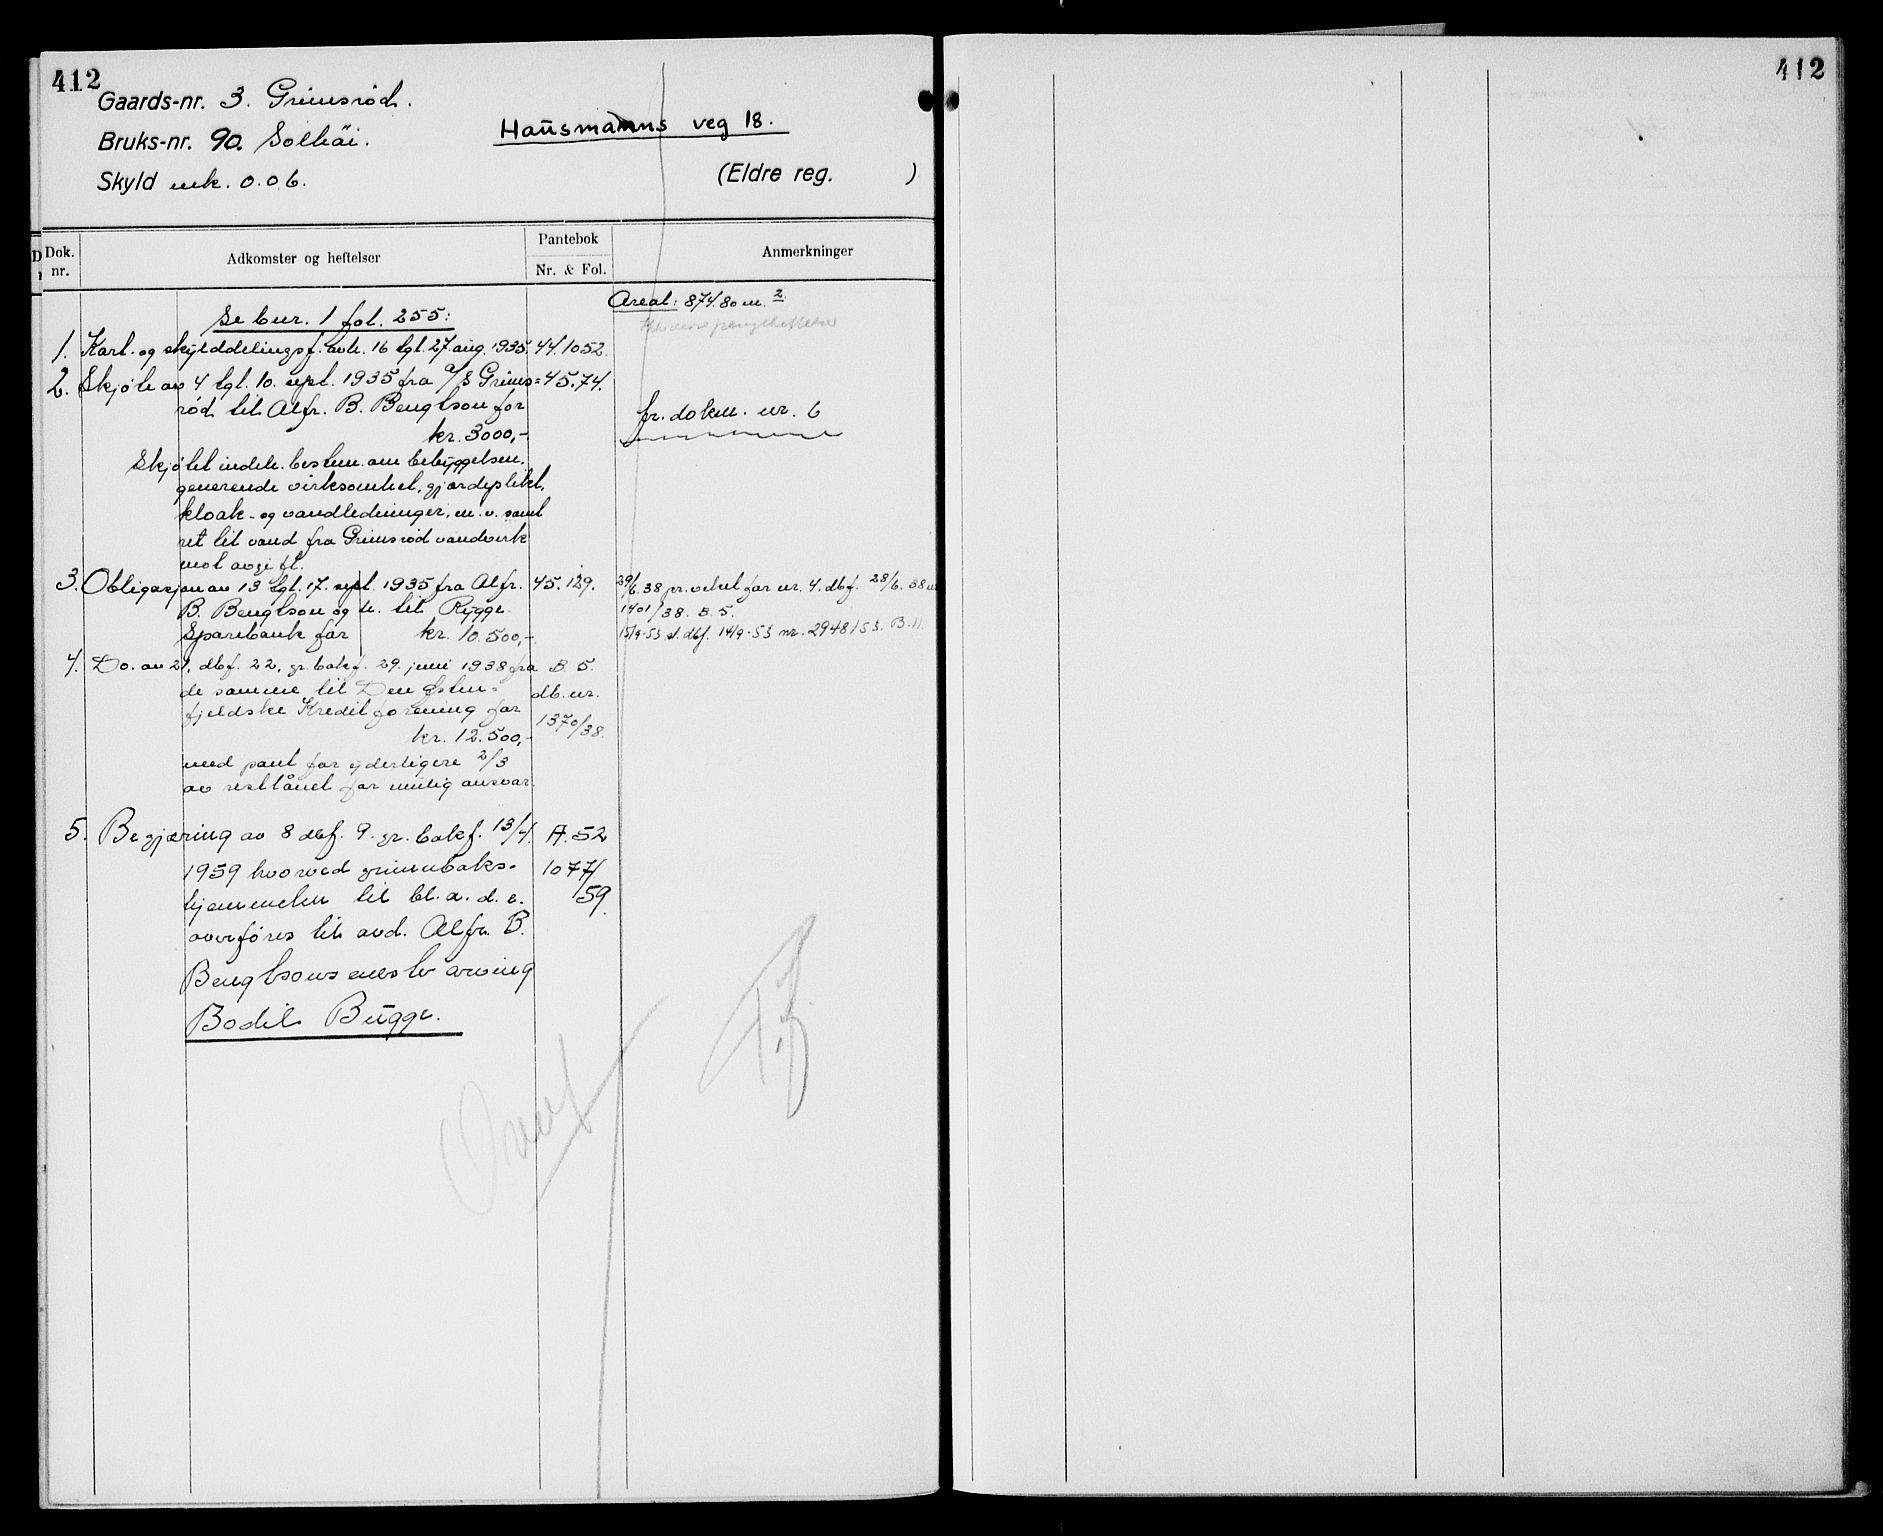 412
Gaards-nr. 3. Grimsrød.
Bruks-nr. 90. Solhäi.
Hausmanns veg 18.
Skyld mk. 0.06.
(Eldre reg. )
Dok. nr.
Adkomster og heftelser
Pantebok
Nr. & Fol.
Anmerkninger
Se bnr. 1 fol. 255:
Areal: 874.80 m.2
1. Kart- og skylddelingsf. avh. 16 tgl. 27. aug. 1935. 44.1052.
2. Skjøte av 4 tgl. 10. sept. 1935 fra A/S Grims= 45.74.
rød til Alfr. B. Bengtson for
kr. 3000,-
fr. dokm. nr. 6
Skjøtet indeh. bestem. om bebyggelsen,
generende virksomhet, gjærdeplikt,
kloak- og vandledninger, m. v. samt
ret til vand fra Grimsrød vandverk
mot avgift.
3. Obligasjon av 13 tgl. 17. sept. 1935 fra Alfr. 45.129.
B. Bengtson og h. til Rygge
Sparebank for kr. 10.500,-
29/6.38 pr. veket for nr. 4. dbf. 28/6.38 nr
1401/38. B.5.
15/9-53 sl. dbf. 14/9-53 nr. 2948/53. B.11.
4. Do. av 21, dbf. 22, gr. bokf. 29. juni 1938 fra B. 5.
de samme til Den Østen- db. nr.
fjeldske Kreditforening for 1370/38.
kr. 12.500,-
med pant for yderligere 2/3
av restlånet for mulig ansvar.
5. Begjæring av 8 dbf. 9. gr. bokf. 13/4. A.52
1959 hvorved grunnboks- 1077/59.
hjemmelen til bl. a. d. e.
overføres til avd. Alfr. B.
Bengtsons eneste arving
Bodil Bugge.
Overf
412